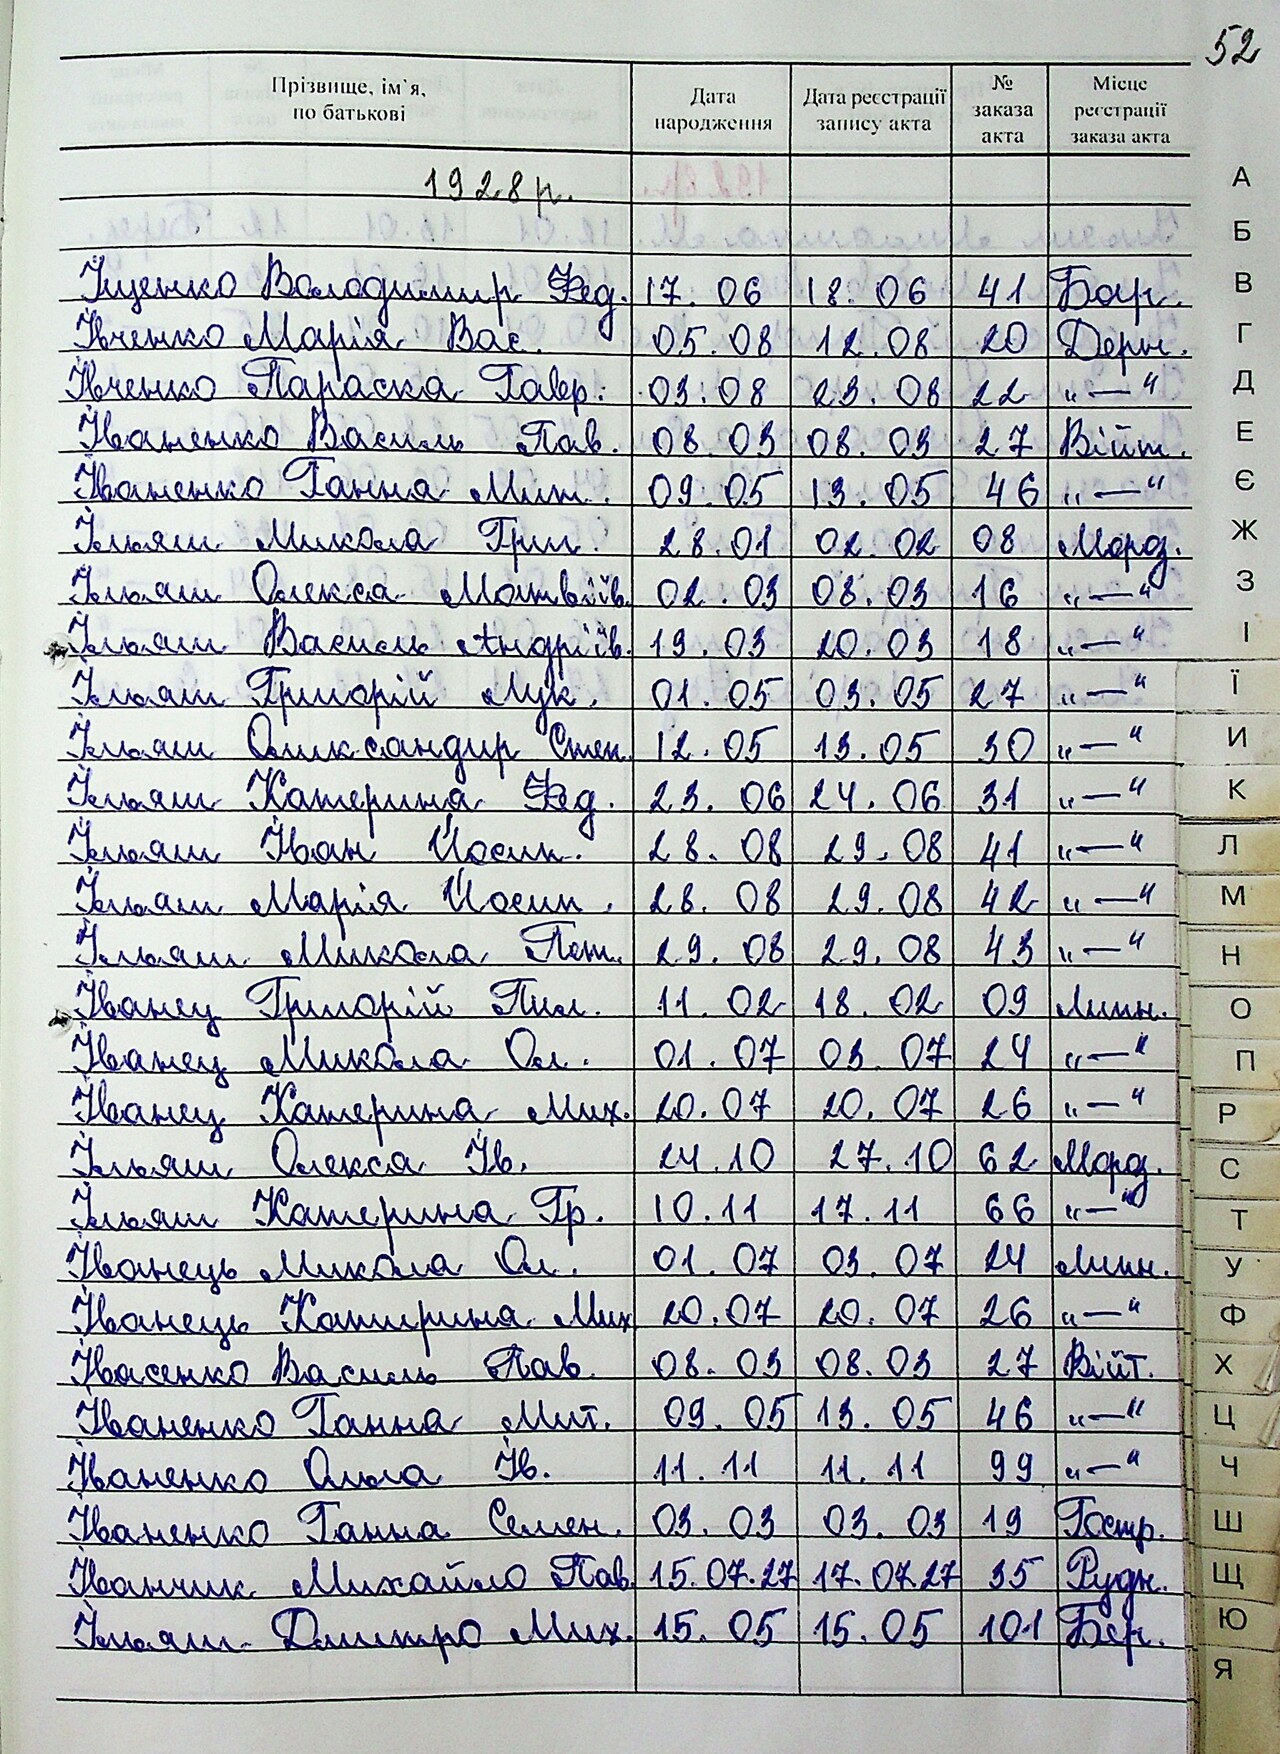 52
Прізвище, ім`я, по батькові Дата народження Дата реєстрації запису акта № заказа акта Місце реєстрації заказа акта
1928р.
Іщенко Володимир Фед. 17.06 18.06 41 Бар.
Івченко Марія Вас. 05.08 12.08 20 Дерн.
Івченко Параска Гавр. 03.08 23.08 22 „—“
Іваненко Василь Пав. 08.03 08.03 27 Війт.
Іваненко Ганна Мит. 09.05 13.05 46 „—“
Ільяш Микола Григ. 28.01 02.02 08 Мороз.
Ільяш Олекса Матвіїв. 02.03 08.03 16 „—“
Ільяш Василь Андріїв. 19.03 20.03 18 „—“
Ільяш Григорій Лук. 01.05 03.05 27 „—“
Ільяш Олександр Степ. 12.05 13.05 30 „—“
Ільяш Катерина Фед. 23.06 24.06 31 „—“
Ільяш Іван Йосип. 28.08 29.08 41 „—“
Ільяш Марія Йосип. 28.08 29.08 42 „—“
Ільяш Микола Пет. 29.08 29.08 43 „—“
Іванец Григорій Пил. 11.02 18.02 09 Липн.
Іванец Микола Ол. 01.07 03.07 24 „—“
Іванец Катерина Мих. 20.07 20.07 26 „—“
Ільяш Олекса Ів. 24.10 27.10 62 Мороз.
Ільяш Катерина Гр. 10.11 17.11 66 „—“
Іванець Микола Ол. 01.07 03.07 24 Липн.
Іванець Катирина Мих 20.07 20.07 26 „—“
Івасенко Василь Пав. 08.03 08.03 27 Війт.
Іваненко Ганна Мит. 09.05 13.05 46 „—“
Іваненко Ольга Ів. 11.11 11.11 99 „—“
Іваненко Ганна Семен. 03.03 03.03 19 Гостр.
Іванчик Михайло Пав. 15.07.27 17.07.27 35 Рудн.
Ільяш Дмитро Мих. 15.05 15.05 101 Бер.
А
Б
В
Г
Д
Е
Є
Ж
З
І
Ї
И
К
Л
М
Н
О
П
Р
С
Т
У
Ф
Х
Ц
Ч
Ш
Щ
Ю
Я